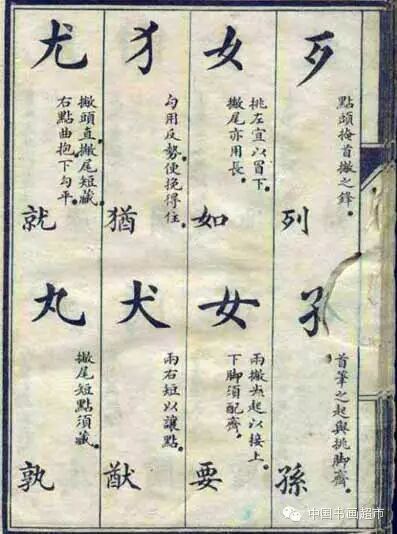 歹
點頭掩首撇之鋒
列
孑
首筆之起與挑脚齊
孫
女
挑左宜以冒下
撇尾亦用長
如
女
兩撇尖起以接上
下脚須配齊
要
犭
勾用反勢便挽得住
猶
犬
兩右短以讓點
猷
尤
撇頭直撇尾短藏
右點曲抱下勾平
就
丸
撇尾短點須藏
孰
中国书画超市